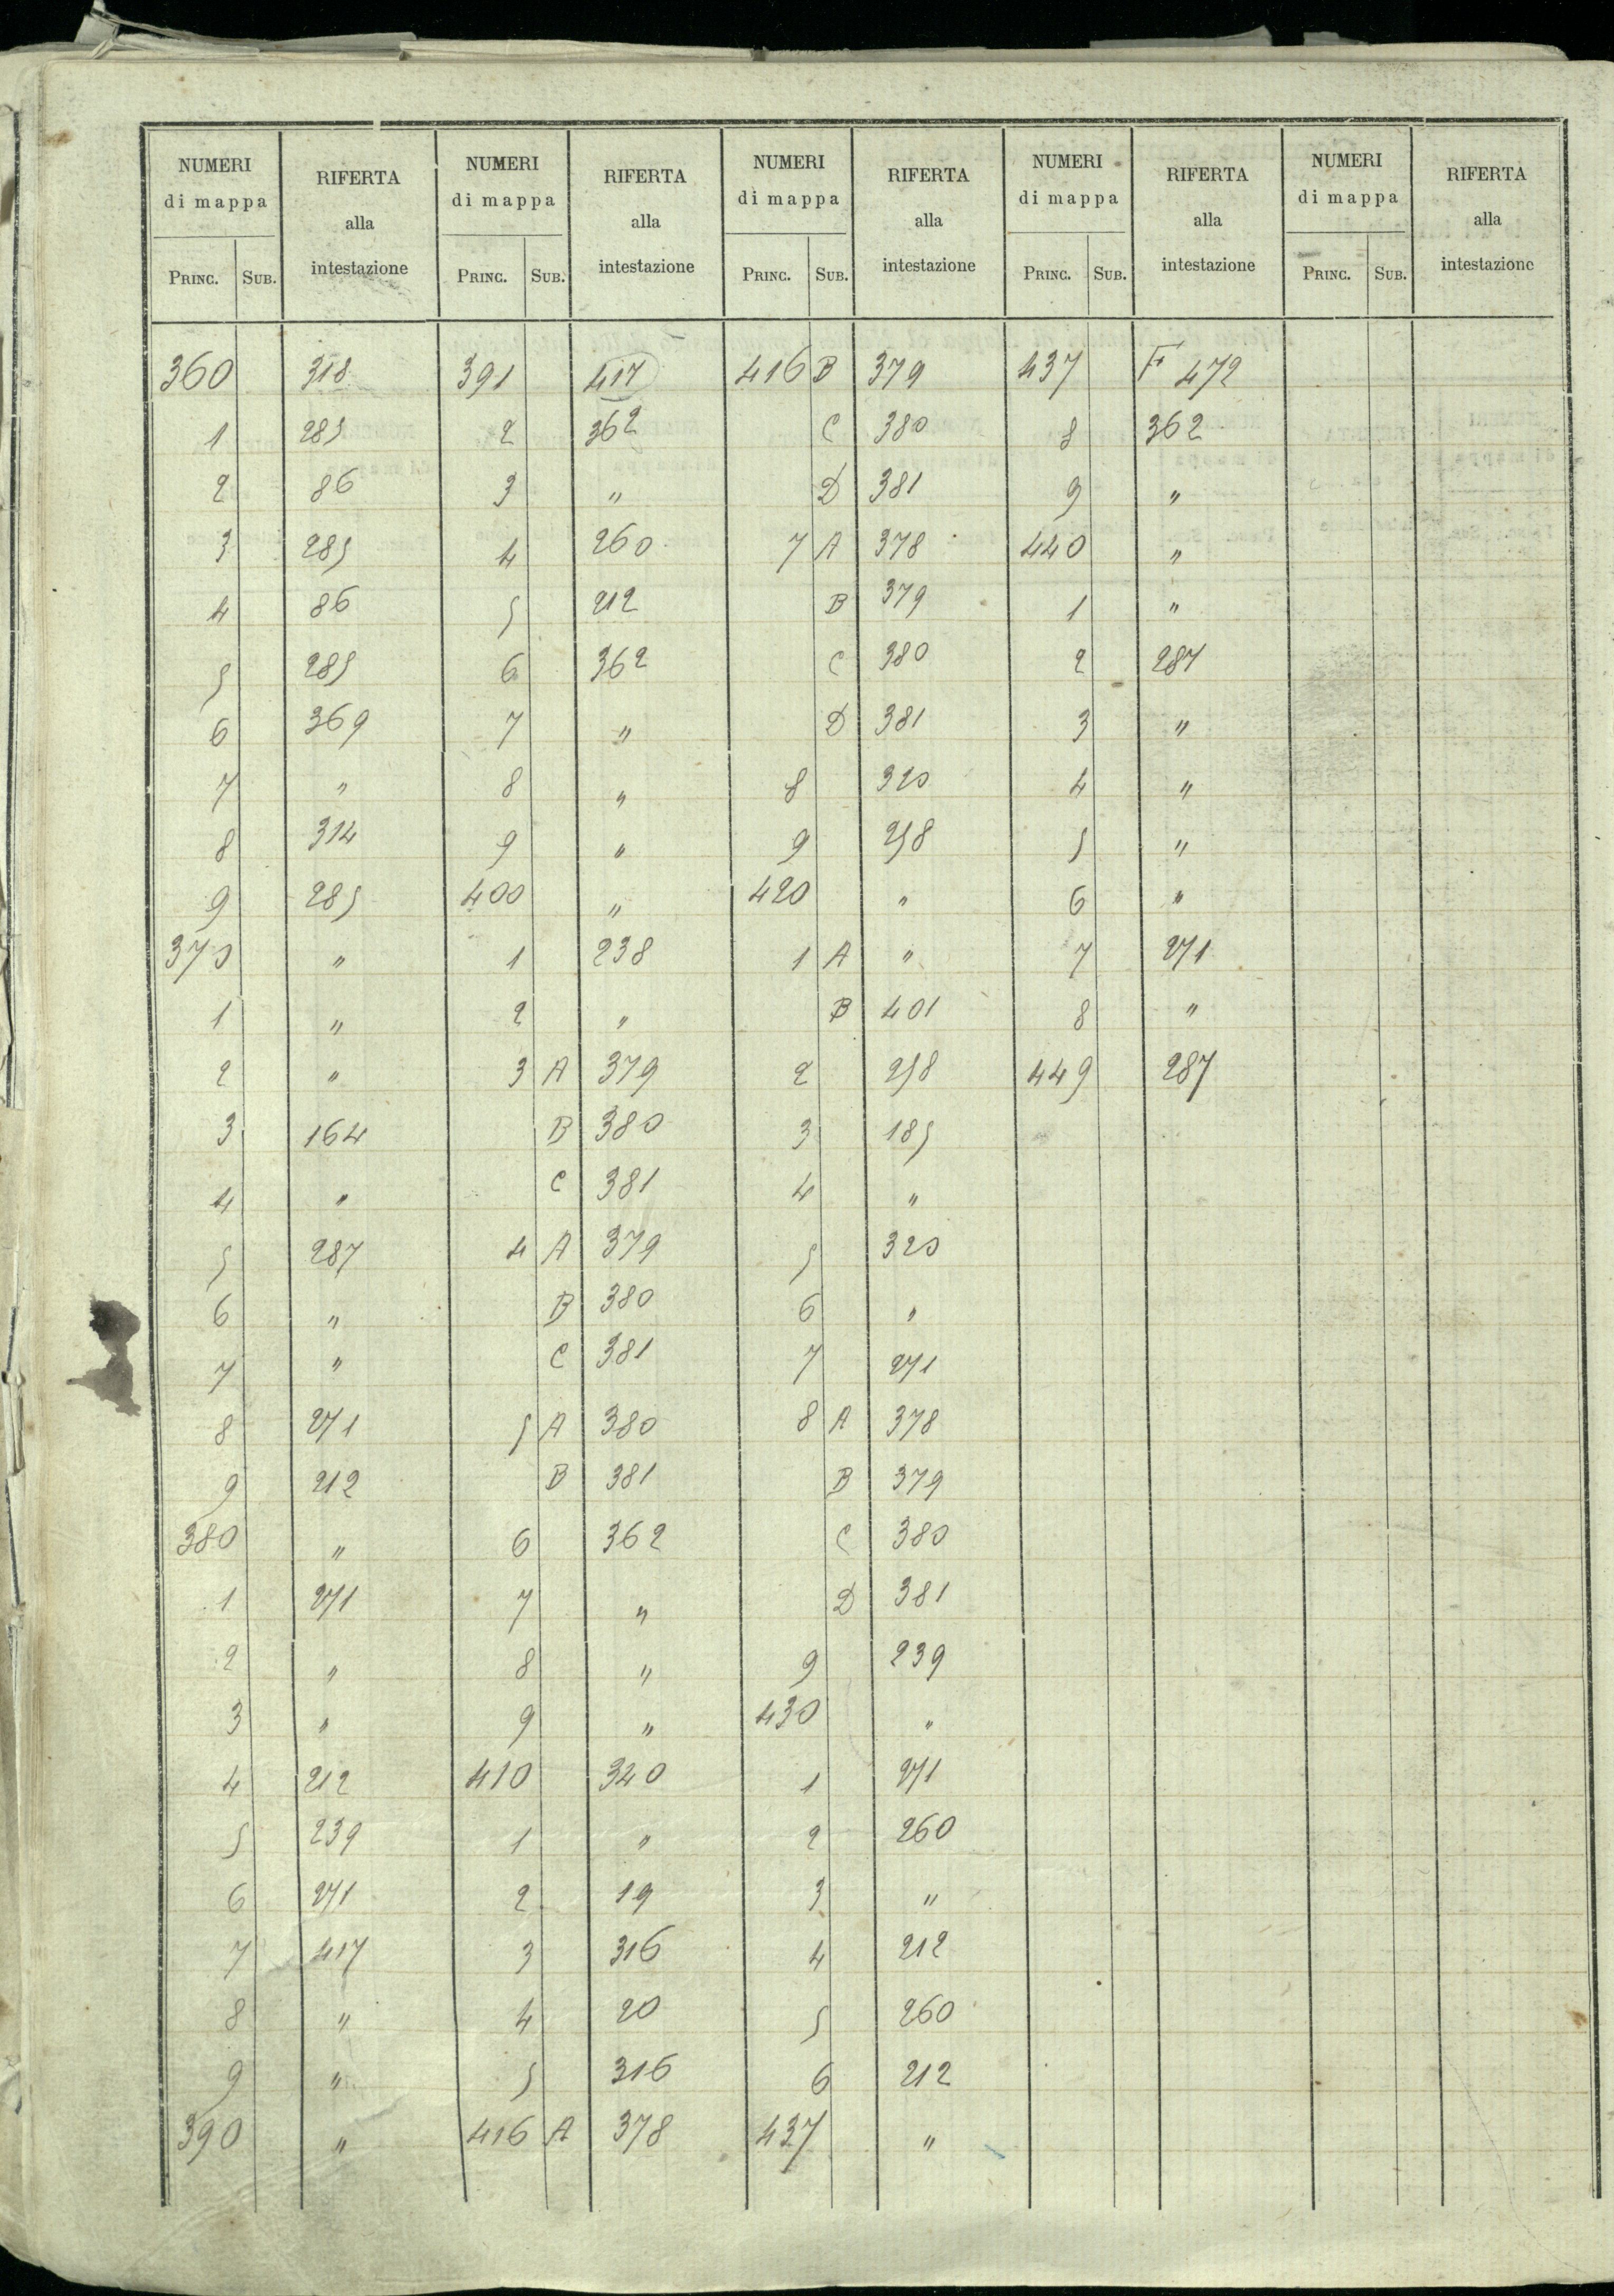 NUMERI di mappa | RIFERTA alla intestazione | NUMERI di mappa | RIFERTA alla intestazione | NUMERI di mappa | RIFERTA alla intestazione | NUMERI di mappa | RIFERTA alla intestazione | NUMERI di mappa | RIFERTA alla intestazione
PRINC. SUB. | PRINC. SUB. | PRINC. SUB. | PRINC. SUB. | PRINC. SUB.
360 318 391 417 416 B 379 437 F 472
1 285 2 362 C 380 8 362
2 86 3 " D 381 9 "
3 285 4 260 7 A 378 440 "
4 86 5 212 B 379 1 "
5 285 6 362 C 380 2 287
6 369 7 " D 381 3 "
7 " 8 " 8 320 4 "
8 314 9 " 9 258 5 "
9 285 400 " 420 " 6 "
370 " 1 238 1 A " 7 271
1 " 2 " B 401 8 "
2 " 3 A 379 2 258 449 287
3 164 B 380 3 185
4 " C 381 4 "
5 287 4 A 379 5 320
6 " B 380 6 "
7 " C 381 7 271
8 271 5 A 380 8 A 378
9 212 B 381 B 379
380 " 6 362 C 380
1 271 7 " D 381
2 " 8 " 9 239
3 " 9 " 430 "
4 212 410 340 1 271
5 239 1 " 2 260
6 271 2 19 3 "
7 417 3 316 4 212
8 " 4 20 5 260
9 " 5 316 6 212
390 " 416 A 378 437 "